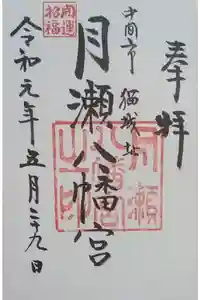 奉拝
中間市 猫城址
月瀬八幡宮
開運
招福
月瀬
八幡宮
之印
令和元年五月二十九日